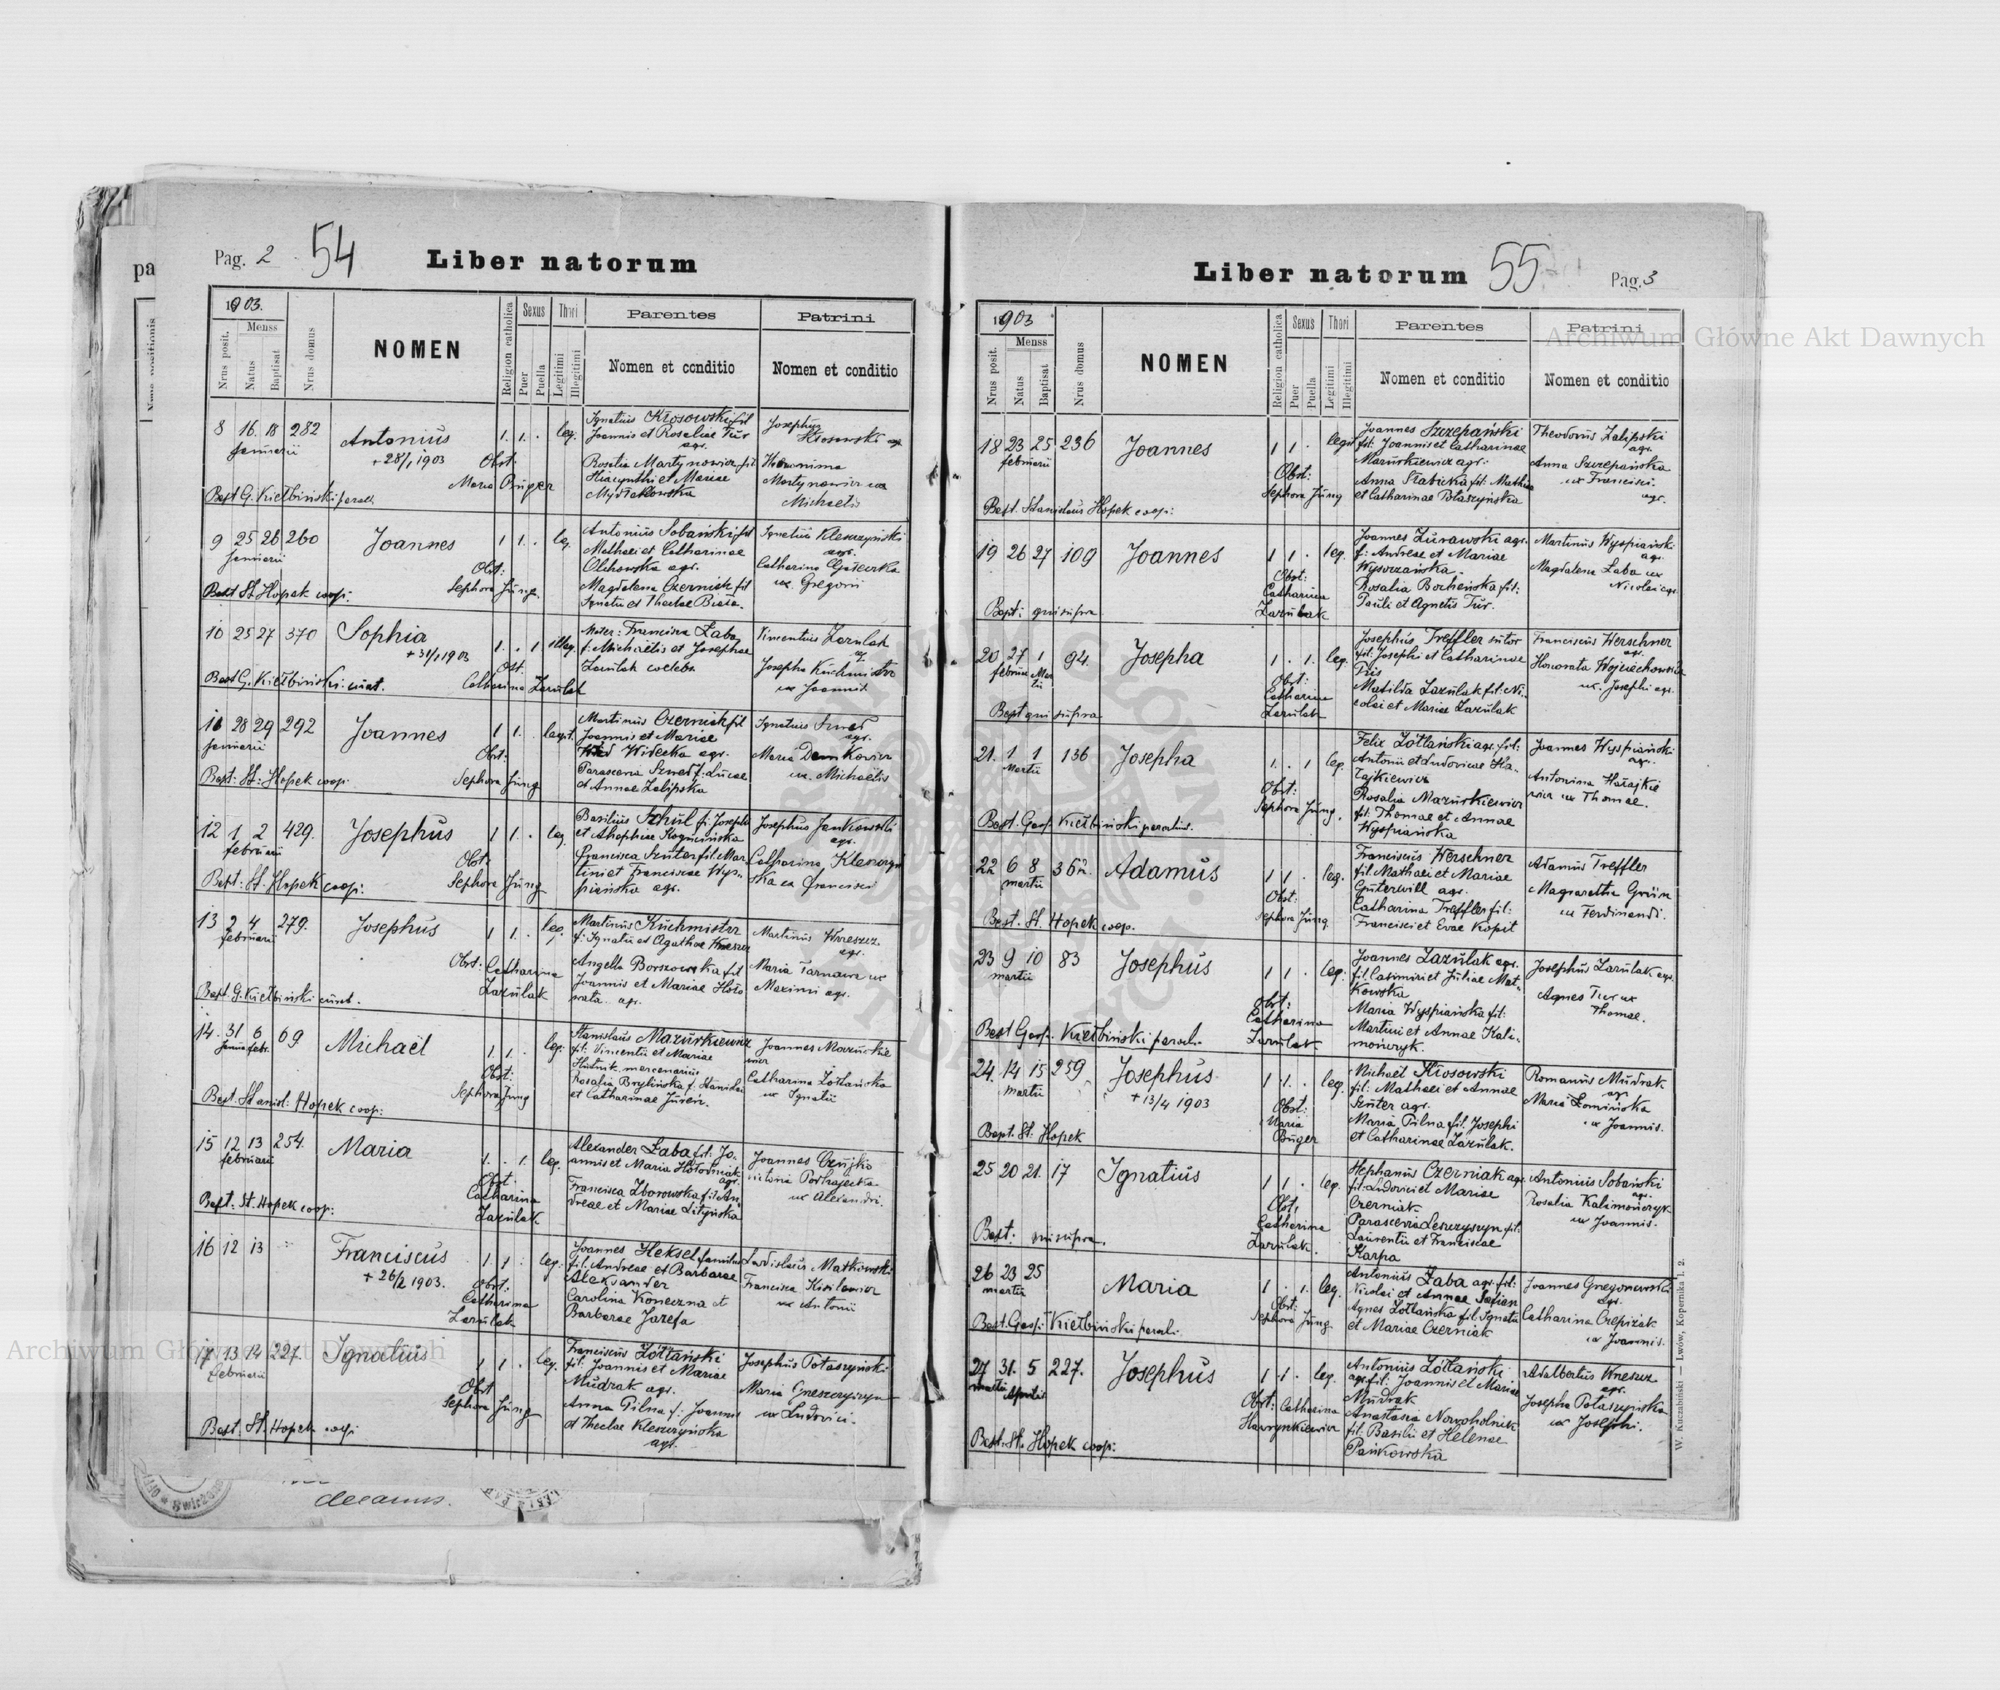 Pag. 2 54
Liber natorum
1903.
Nrus posit.
Menss
Natus
Baptisat
Nrus domus
NOMEN
Religion catholica
Sexus
Puer
Puella
Thori
Legitimi
Illegitimi
Parentes
Nomen et conditio
Patrini
Nomen et conditio
8 16. 18 282 Antonius 1. 1. . leg. Ignatius Kłosowski fil Josephus
Januarii Joannis et Rosaliae Tur Kłosowski agr.
+28/1 1903 agr.
Obst: Rosalia Martynowicz fil Hieronima
Maria Buger Hiacynthi et Mariae Martynowicz ux
Bapt G. Kiełbiński paroch. Michaelis
9 25 26 260 Joannes 1 1. . leg. Antonius Sobański fil Ignatius Kleszczyński
Januarii Mathaei et Catharinae agr.
Obst: Olchowska agr. Catharina
Bapt St Hopek coop: Sephora Jung. Magdalena Czerniak fil ux. Gregorii
Ignatii et Theclae Biała.
10 25 27 370 Sophia 1. . 1 illeg. Mater: Francisca Łaba Vincentius Lazulak
+31/1 1903 f: Michaëlis et Josephae
Obst: Lazulak coelebs Josepha Kuchmistrz
Bapt G. Kiełbiński Catharina Lazulak ux Joannis
11 28 29 292 Joannes 1 1. . legit. Martinus Czerniak fil Ignatius Szned
Januarii Joannis et Mariae agr.
Obst: Widecka agr. Maria Demkowicz
Bapt: St: Hopek coop. Sephora Jung Parascevia Szned f: Lucae ux. Michaëlis
et Annae Zalipska
12 1 2 429. Josephus 1 1. . leg Basilius fi: Josephi Josephus Jankowski
februarii et agr.
Obst: Francisca Szuter fil: Mar- Catharina Kleszczyń
Bapt: St. Hopek coop: Sephora Jung tini et Franciscae Wys- ska ux Francisci
piańska agr.
13 2 4 279. Josephus 1 1. . leg. Martinus Kuchmistrz Martinus Wreszcz
februarii f: Ignatii et Agathae agr.
Obst: Catharina Angella Borszowska fil Maria Tarnawa ux
Bapt. G. Kiełbiński Lazulak Joannis et Mariae Maximi agr.
agr.
14. 31. 6 69 Michaël 1 1. . leg: Stanislaus Mazurkiewicz Joannes Mazurkie
febr. fil: Vincentii et Mariae wicz
Obst: Hutnik mercenarius Catharina Żółtańska
Bapt. Stanisl: Hopek coop: Sephora Jung Rosalia Brylińska f. Stanislai ux Ignatii
et Catharinae
15 12 13 254. Maria 1. . 1. leg. Alexander Łaba fil: Jo- Joannes
februarii annis et Maria
Obst: agr. Podhajecka
Catharina Francisca Zborowska fil: An- ux Alexandri.
Bapt: St. Hopek coop: Lazulak dreae et Mariae Lityńska
16 12 13 Franciscus 1. 1. . leg. Joannes Heksel Ladislaus Matkowski
+ 26/2 1903. fil. Andreae et Barbarae Francisca
Obst: Aleksander ux Antonii
Catharina Carolina Koneczna et
Lazulak Barbarae Jazefa
17 13 14 227. Ignatius 1 1. . leg. Franciscus Żółtański Josephus Potaszyński
februarii fil. Joannis et Mariae
Obst Mudrak agr. Maria Greszczyszyn
Sephora Jung Anna Pilna f: Joannis ux Ludovici.
Bapt. St. Hopek coop: et Theclae Kleszczyńska
agr.
decanus.
Liber natorum 55 Pag. 3
1903
Nrus posit.
Menss
Natus
Baptisat
Nrus domus
NOMEN
Religion catholica
Sexus
Puer
Puella
Thori
Legitimi
Illegitimi
Parentes
Nomen et conditio
Patrini
Nomen et conditio
18 23 25 236 Joannes 1 1 . legit Joannes Szczepański Theodorus Zalipski
februarii fil: Joannis et Catharinae agr.
Obst: Mazurkiewicz agr. Anna Szczepańska
Sephora Jung Anna Słabicka fil: Mathiae ux Francisci.
Bapt. Stanislaus Hopek coop: et Catharinae Potaszyńska agr.
19 26 27 109 Joannes 1 1 . leg. Joannes Żurawski agr. Martinus Wyspiański
f: Andreae et Mariae agr.
Obst: Wysoczańska Magdalena Łaba ux
Catharina Rosalia Bocheńska fil: Nicolai agr.
Bapt: qui supra Lazulak Pauli et Agnetis Tur.
20 27 1 94. Josepha 1 . 1. leg. Josephus Treffler sutor Franciscus Werschner
februarii Martii fil: Josephi et Catharinae agr.
Obst: Honorata Wojciechowska
Catharina Matilda Lazulak fil: Ni- ux. Josephi agr.
Bapt qui supra Lazulak colai et Mariae Lazulak
21. 1 1 136 Josepha 1. . 1 leg. Felix Żółtański agr. fil: Joannes Wyspiański
Martii Antonii et Ludovicae Ha- agr.
Obst: Antonina
Sephora Jung. Rosalia Mazurkiewicz wicz ux Thomae.
Bapt. Georg. Kiełbiński paroch. fil: Thomae et Annae
Wyspiańska
22 6 8 362. Adamus 1 1 . leg. Franciscus Werschner Adamus Treffler
martii fil: Mathaei et Mariae
Obst: Guterwill agr. Magaretha Grün
Sephora Jung Catharina Treffler fil: ux Ferdinandi.
Bapt. St. Hopek coop. Francisci et Evae Kopit
23 9 10 83 Josephus 1 1 . leg. Joannes Lazulak agr. Josephus Lazulak agr.
martii fil Casimiri et Juliae Mat-
Obst: kowska Agnes Tur ux
Catharina Maria Wyspiańska fil: Thomae.
Bapt Georg. Kiełbiński paroch. Lazulak Martini et Annae Kali-
mończyk.
24. 14 15 259 Josephus 1 1. . leg. Michaël Kłosowski Romanus Mudrak
martii fil: Mathaei et Annae agr
+ 13/4 1903 Obst: Szuter agr. Maria Łomińska
Maria Maria Pilna fil. Josephi ux Joannis.
Bapt. St: Hopek Buger et Catharinae Lazulak.
25 20 21. 17 Ignatius 1 1 . leg. Stephanus Czerniak agr. Antonius Sobański
fil: Ludovici et Mariae agr.
Obst. Czerniak Rosalia Kalimończyk
Catharina Parascevia Leszczyszyn fil: ux Joannis.
Bapt: qui supra. Lazulak. Laurentii et Franciscae
Karpa
26 23 25 Maria 1 . 1. leg. Antonius Łaba agr. fil: Joannes Gregorowski
martii Nicolai et Annae Stefan agr.
Obst: Agnes Żółtańska fil. Ignatii Catharina Czepizak
Bapt. Georg: Kiełbiński paroch. Sephora Jung et Mariae Czerniak ux Joannis.
27 31. 5 227. Josephus 1 1 . leg. Antonius Żółtański Adalbertus Wreszcz
martii Aprilis agr. fil: Joannis et Mariae agr.
Obst: Catharina Mudrak Josepha Potaszyńska
Hawrynkiewicz Anastasia Nowoholnik ux Josephi.
Bapt. St. Hopek coop: fil: Basilii et Helenae
Pańkowska
W. Kuczabiński — Lwów, Kopernika l. 2.
Archiwum Główne Akt Dawnych
Archiwum Główne Akt Dawnych